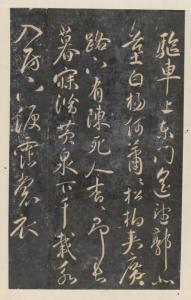 驅車上東門遙望郭北
墓白楊何蕭〻松柏夾廣
路下有陳死人杳〻即長
暮寐潛黃泉下千載永
衣